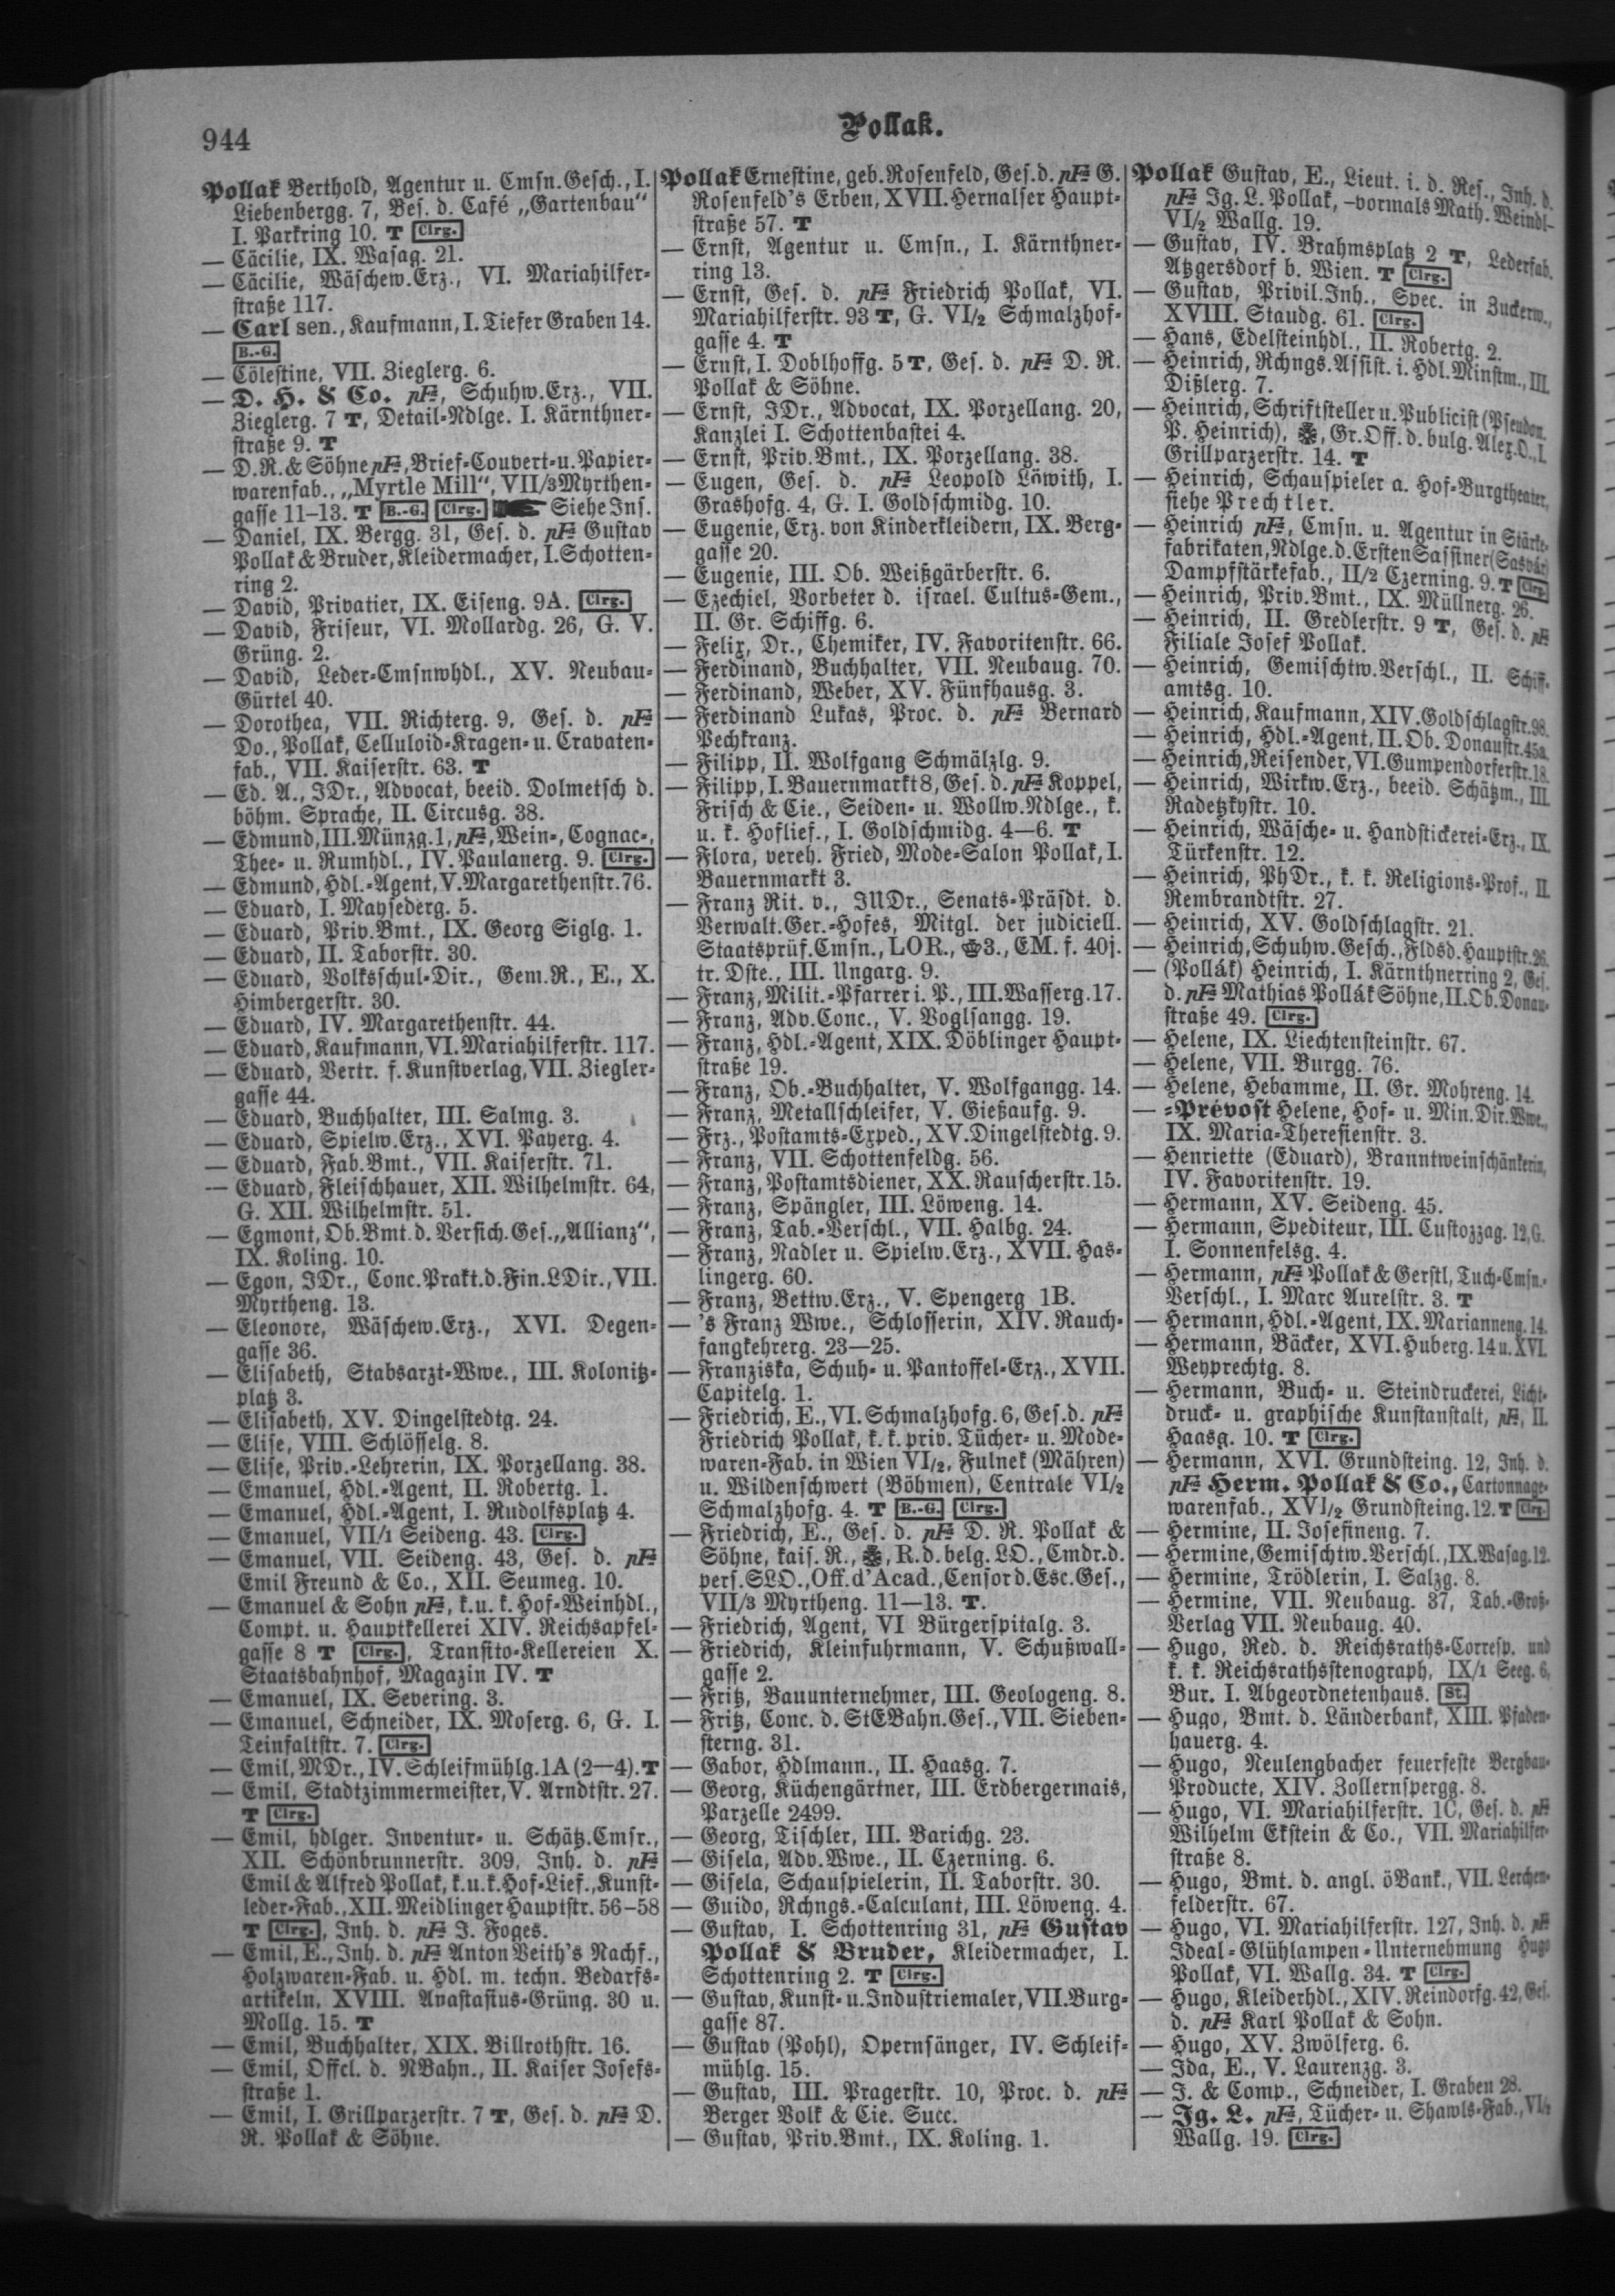 944
Pollak.
Pollak Berthold, Agentur u. Cmsn.Gesch., I.
Liebenbergg. 7, Bes. d. Café „Gartenbau“
I. Parkring 10. T Clrg.
— Cäcilie, IX. Wasag. 21.
— Cäcilie, Wäschew.Erz., VI. Mariahilfer-
straße 117.
— Carl sen., Kaufmann, I. Tiefer Graben 14.
B.-G.
— Cölestine, VII. Zieglerg. 6.
— D. H. & Co. pFa, Schuhw.Erz., VII.
Zieglerg. 7 T, Detail-Ndlge. I. Kärnthner-
straße 9. T
— D. R. & Söhne pFa, Brief-Couvert- u. Papier-
warenfab., „Myrtle Mill“, VII/3 Myrthen-
gasse 11–13. T B.-G. Clrg. Siehe Ins.
— Daniel, IX. Bergg. 31, Ges. d. pFa Gustav
Pollak & Bruder, Kleidermacher, I. Schotten-
ring 2.
— David, Privatier, IX. Eiseng. 9A. Clrg.
— David, Friseur, VI. Mollardg. 26, G. V.
Grüng. 2.
— David, Leder-Cmsnwhdl., XV. Neubau-
Gürtel 40.
— Dorothea, VII. Richterg. 9, Ges. d. pFa
Do., Pollak, Celluloid-Kragen- u. Cravaten-
fab., VII. Kaiserstr. 63. T
— Ed. A., JDr., Advocat, beeid. Dolmetsch d.
böhm. Sprache, II. Circusg. 38.
— Edmund, III. Münzg. 1, pFa, Wein-, Cognac-,
Thee- u. Rumhdl., IV. Paulanerg. 9. Clrg.
— Edmund, Hdl.-Agent, V. Margarethenstr. 76.
— Eduard, I. Maysederg. 5.
— Eduard, Priv.Bmt., IX. Georg Siglg. 1.
— Eduard, II. Taborstr. 30.
— Eduard, Volksschul-Dir., Gem.R., E., X.
Himbergerstr. 30.
— Eduard, IV. Margarethenstr. 44.
— Eduard, Kaufmann, VI. Mariahilferstr. 117.
— Eduard, Vertr. f. Kunstverlag, VII. Ziegler-
gasse 44.
— Eduard, Buchhalter, III. Salmg. 3.
— Eduard, Spielw.Erz., XVI. Payerg. 4.
— Eduard, Fab.Bmt., VII. Kaiserstr. 71.
— Eduard, Fleischhauer, XII. Wilhelmstr. 64,
G. XII. Wilhelmstr. 51.
— Egmont, Ob.Bmt. d. Versich.Ges. „Allianz“,
IX. Koling. 10.
— Egon, JDr., Conc.Prakt. d. Fin.LDir., VII.
Myrtheng. 13.
— Eleonore, Wäschew.Erz., XVI. Degen-
gasse 36.
— Elisabeth, Stabsarzt-Wwe., III. Kolonitz-
platz 3.
— Elisabeth, XV. Dingelstedtg. 24.
— Elise, VIII. Schlösselg. 8.
— Elise, Priv.-Lehrerin, IX. Porzellang. 38.
— Emanuel, Hdl.-Agent, II. Robertg. 1.
— Emanuel, Hdl.-Agent, I. Rudolfsplatz 4.
— Emanuel, VII/1 Seideng. 43. Clrg.
— Emanuel, VII. Seideng. 43, Ges. d. pFa
Emil Freund & Co., XII. Seumeg. 10.
— Emanuel & Sohn pFa, k. u. k. Hof-Weinhdl.,
Compt. u. Hauptkellerei XIV. Reichsapfel-
gasse 8 T Clrg., Transito-Kellereien X.
Staatsbahnhof, Magazin IV. T
— Emanuel, IX. Severing. 3.
— Emanuel, Schneider, IX. Moserg. 6, G. I.
Teinfaltstr. 7. Clrg.
— Emil, MDr., IV. Schleifmühlg. 1A (2—4). T
— Emil, Stadtzimmermeister, V. Arndtstr. 27.
T Clrg.
— Emil, hdlger. Inventur- u. Schätz.Cmsr.,
XII. Schönbrunnerstr. 309, Inh. d. pFa
Emil & Alfred Pollak, k. u. k. Hof-Lief., Kunst-
leder-Fab., XII. Meidlinger Hauptstr. 56–58
T Clrg., Inh. d. pFa J. Foges.
— Emil, E., Inh. d. pFa Anton Veith's Nachf.,
Holzwaren-Fab. u. Hdl. m. techn. Bedarfs-
artikeln, XVIII. Anastasius-Grüng. 30 u.
Mollg. 15. T
— Emil, Buchhalter, XIX. Billrothstr. 16.
— Emil, Offcl. d. NBahn., II. Kaiser Josefs-
straße 1.
— Emil, I. Grillparzerstr. 7 T, Ges. d. pFa D.
R. Pollak & Söhne.
Pollak Ernestine, geb. Rosenfeld, Ges. d. pFa G.
Rosenfeld's Erben, XVII. Hernalser Haupt-
straße 57. T
— Ernst, Agentur u. Cmsn., I. Kärnthner-
ring 13.
— Ernst, Ges. d. pFa Friedrich Pollak, VI.
Mariahilferstr. 93 T, G. VI/2 Schmalzhof-
gasse 4. T
— Ernst, I. Doblhoffg. 5 T, Ges. d. pFa D. R.
Pollak & Söhne.
— Ernst, JDr., Advocat, IX. Porzellang. 20,
Kanzlei I. Schottenbastei 4.
— Ernst, Priv.Bmt., IX. Porzellang. 38.
— Eugen, Ges. d. pFa Leopold Löwith, I.
Grashofg. 4, G. I. Goldschmidg. 10.
— Eugenie, Erz. von Kinderkleidern, IX. Berg-
gasse 20.
— Eugenie, III. Ob. Weißgärberstr. 6.
— Ezechiel, Vorbeter d. israel. Cultus-Gem.,
II. Gr. Schiffg. 6.
— Felix, Dr., Chemiker, IV. Favoritenstr. 66.
— Ferdinand, Buchhalter, VII. Neubaug. 70.
— Ferdinand, Weber, XV. Fünfhausg. 3.
— Ferdinand Lukas, Proc. d. pFa Bernard
Pechkranz.
— Filipp, II. Wolfgang Schmälzlg. 9.
— Filipp, I. Bauernmarkt 8, Ges. d. pFa Koppel,
Frisch & Cie., Seiden- u. Wollw.Ndlge., k.
u. k. Hoflief., I. Goldschmidg. 4—6. T
— Flora, vereh. Fried, Mode-Salon Pollak, I.
Bauernmarkt 3.
— Franz Rit. v., JUDr., Senats-Präsdt. d.
Verwalt.Ger.-Hofes, Mitgl. der judiciell.
Staatsprüf.Cmsn., LOR., 3., EM. f. 40j.
tr. Dste., III. Ungarg. 9.
— Franz, Milit.-Pfarrer i. P., III. Wasserg. 17.
— Franz, Adv.Conc., V. Voglsangg. 19.
— Franz, Hdl.-Agent, XIX. Döblinger Haupt-
straße 19.
— Franz, Ob.-Buchhalter, V. Wolfgangg. 14.
— Franz, Metallschleifer, V. Gießaufg. 9.
— Frz., Postamts-Exped., XV. Dingelstedtg. 9.
— Franz, VII. Schottenfeldg. 56.
— Franz, Postamtsdiener, XX. Rauscherstr. 15.
— Franz, Spängler, III. Löweng. 14.
— Franz, Tab.-Verschl., VII. Halbg. 24.
— Franz, Nadler u. Spielw.Erz., XVII. Has-
lingerg. 60.
— Franz, Bettw.Erz., V. Spengerg 1B.
— 's Franz Wwe., Schlosserin, XIV. Rauch-
fangkehrerg. 23—25.
— Franziska, Schuh- u. Pantoffel-Erz., XVII.
Capitelg. 1.
— Friedrich, E., VI. Schmalzhofg. 6, Ges. d. pFa
Friedrich Pollak, k. k. priv. Tücher- u. Mode-
waren-Fab. in Wien VI/2, Fulnek (Mähren)
u. Wildenschwert (Böhmen), Centrale VI/2
Schmalzhofg. 4. T B.-G. Clrg.
— Friedrich, E., Ges. d. pFa D. R. Pollak &
Söhne, kais. R., R. d. belg. LO., Cmdr. d.
pers. SLO., Off. d'Acad., Censor d. Esc.Ges.,
VII/3 Myrtheng. 11—13. T.
— Friedrich, Agent, VI Bürgerspitalg. 3.
— Friedrich, Kleinfuhrmann, V. Schußwall-
gasse 2.
— Fritz, Bauunternehmer, III. Geologeng. 8.
— Fritz, Conc. d. StEBahn.Ges., VII. Sieben-
sterng. 31.
— Gabor, Hdlmann., II. Haasg. 7.
— Georg, Küchengärtner, III. Erdbergermais,
Parzelle 2499.
— Georg, Tischler, III. Barichg. 23.
— Gisela, Adv.Wwe., II. Czerning. 6.
— Gisela, Schauspielerin, II. Taborstr. 30.
— Guido, Rchngs.-Calculant, III. Löweng. 4.
— Gustav, I. Schottenring 31, pFa Gustav
Pollak & Bruder, Kleidermacher, I.
Schottenring 2. T Clrg.
— Gustav, Kunst- u. Industriemaler, VII. Burg-
gasse 87.
— Gustav (Pohl), Opernsänger, IV. Schleif-
mühlg. 15.
— Gustav, III. Pragerstr. 10, Proc. d. pFa
Berger Volk & Cie. Succ.
— Gustav, Priv.Bmt., IX. Koling. 1.
Pollak Gustav, E., Lieut. i. d. Res., Inh. d.
pFa Ig. L. Pollak, -vormals Math. Weindl-
VI/2 Wallg. 19.
— Gustav, IV. Brahmsplatz 2 T, Lederfab.
Atzgersdorf b. Wien. T Clrg.
— Gustav, Privil.Inh., Spec. in Zuckerw.,
XVIII. Staudg. 61. Clrg.
— Hans, Edelsteinhdl., II. Robertg. 2.
— Heinrich, Rchngs.Assist. i. Hdl.Minstm., III.
Dißlerg. 7.
— Heinrich, Schriftsteller u. Publicist (Pseudon.
P. Heinrich), Gr.Off. d. bulg. Alex.O., I.
Grillparzerstr. 14. T
— Heinrich, Schauspieler a. Hof-Burgtheater,
siehe Prechtler.
— Heinrich pFa, Cmsn. u. Agentur in Stärke-
fabrikaten, Ndlge. d. Ersten Sassiner (Sasvár)
Dampfstärkefab., II/2 Czerning. 9. T Clrg.
— Heinrich, Priv.Bmt., IX. Müllnerg. 26.
— Heinrich, II. Gredlerstr. 9 T, Ges. d. pFa
Filiale Josef Pollak.
— Heinrich, Gemischtw.Verschl., II. Schiff-
amtsg. 10.
— Heinrich, Kaufmann, XIV. Goldschlagstr. 98.
— Heinrich, Hdl.-Agent, II. Ob. Donaustr. 45a.
— Heinrich, Reisender, VI. Gumpendorferstr. 18.
— Heinrich, Wirkw.Erz., beeid. Schätzm., III.
Radetzkystr. 10.
— Heinrich, Wäsche- u. Handstickerei-Erz., IX.
Türkenstr. 12.
— Heinrich, PhDr., k. k. Religions-Prof., II.
Rembrandtstr. 27.
— Heinrich, XV. Goldschlagstr. 21.
— Heinrich, Schuhw.Gesch., Fldsd. Hauptstr. 26.
— (Pollák) Heinrich, I. Kärnthnerring 2, Ges.
d. pFa Mathias Pollák Söhne, II. Ob. Donau-
straße 49. Clrg.
— Helene, IX. Liechtensteinstr. 67.
— Helene, VII. Burgg. 76.
— Helene, Hebamme, II. Gr. Mohreng. 14.
— -Prévost Helene, Hof- u. Min.Dir.Wwe.,
IX. Maria-Theresienstr. 3.
— Henriette (Eduard), Branntweinschänkerin,
IV. Favoritenstr. 19.
— Hermann, XV. Seideng. 45.
— Hermann, Spediteur, III. Custozzag. 12, G.
I. Sonnenfelsg. 4.
— Hermann, pFa Pollak & Gerstl, Tuch-Cmsn.-
Verschl., I. Marc Aurelstr. 3. T
— Hermann, Hdl.-Agent, IX. Marianneng. 14.
— Hermann, Bäcker, XVI. Huberg. 14 u. XVI.
Weyprechtg. 8.
— Hermann, Buch- u. Steindruckerei, Licht-
druck- u. graphische Kunstanstalt, pFa, II.
Haasg. 10. T Clrg.
— Hermann, XVI. Grundsteing. 12, Inh. d.
pFa Herm. Pollak & Co., Cartonnage-
warenfab., XVI/2 Grundsteing. 12. T Clrg.
— Hermine, II. Josefineng. 7.
— Hermine, Gemischtw.Verschl., IX. Wasag. 12.
— Hermine, Trödlerin, I. Salzg. 8.
— Hermine, VII. Neubaug. 37, Tab.-Groß-
Verlag VII. Neubaug. 40.
— Hugo, Red. d. Reichsraths-Corresp. und
k. k. Reichsrathsstenograph, IX/1 Seeg. 6,
Bur. I. Abgeordnetenhaus. St.
— Hugo, Bmt. d. Länderbank, XIII. Pfaden-
hauerg. 4.
— Hugo, Neulengbacher feuerfeste Bergbau-
Producte, XIV. Zollernspergg. 8.
— Hugo, VI. Mariahilferstr. 1C, Ges. d. pFa
Wilhelm Ekstein & Co., VII. Mariahilfer-
straße 8.
— Hugo, Bmt. d. angl. öBank., VII. Lerchen-
felderstr. 67.
— Hugo, VI. Mariahilferstr. 127, Inh. d. pFa
Ideal-Glühlampen-Unternehmung Hugo
Pollak, VI. Wallg. 34. T Clrg.
— Hugo, Kleiderhdl., XIV. Reindorfg. 42, Ges.
d. pFa Karl Pollak & Sohn.
— Hugo, XV. Zwölferg. 6.
— Ida, E., V. Laurenzg. 3.
— J. & Comp., Schneider, I. Graben 28.
— Ig. L. pFa, Tücher- u. Shawls-Fab., VI/2
Wallg. 19. Clrg.